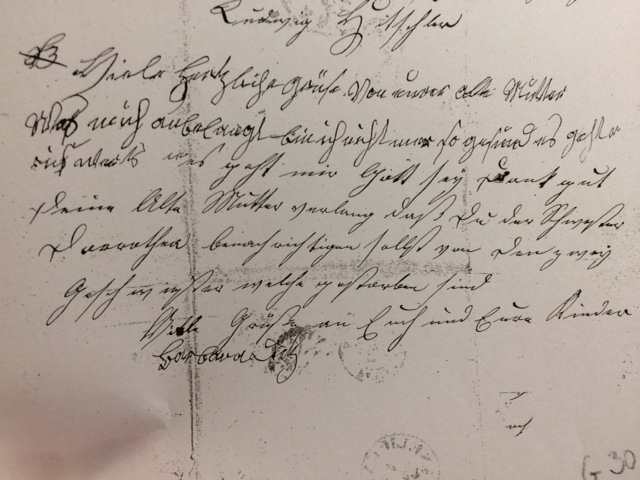 Ludwig Hitschler
Viele Hertzliche grüse Von eurer alte Mutter
Was mich anbelangt bin ich nicht mer so gesund es geht
rückwerts es geht mir Gott sey Dank gut
Deine Alte Mutter verlang daß Du der Schwester
Dorrothea benachrichtigen sollst von den zwey
Geschwister welche gestorben sind
Viele Grüße an Euch und Eure Kinder
Barbara
G 30